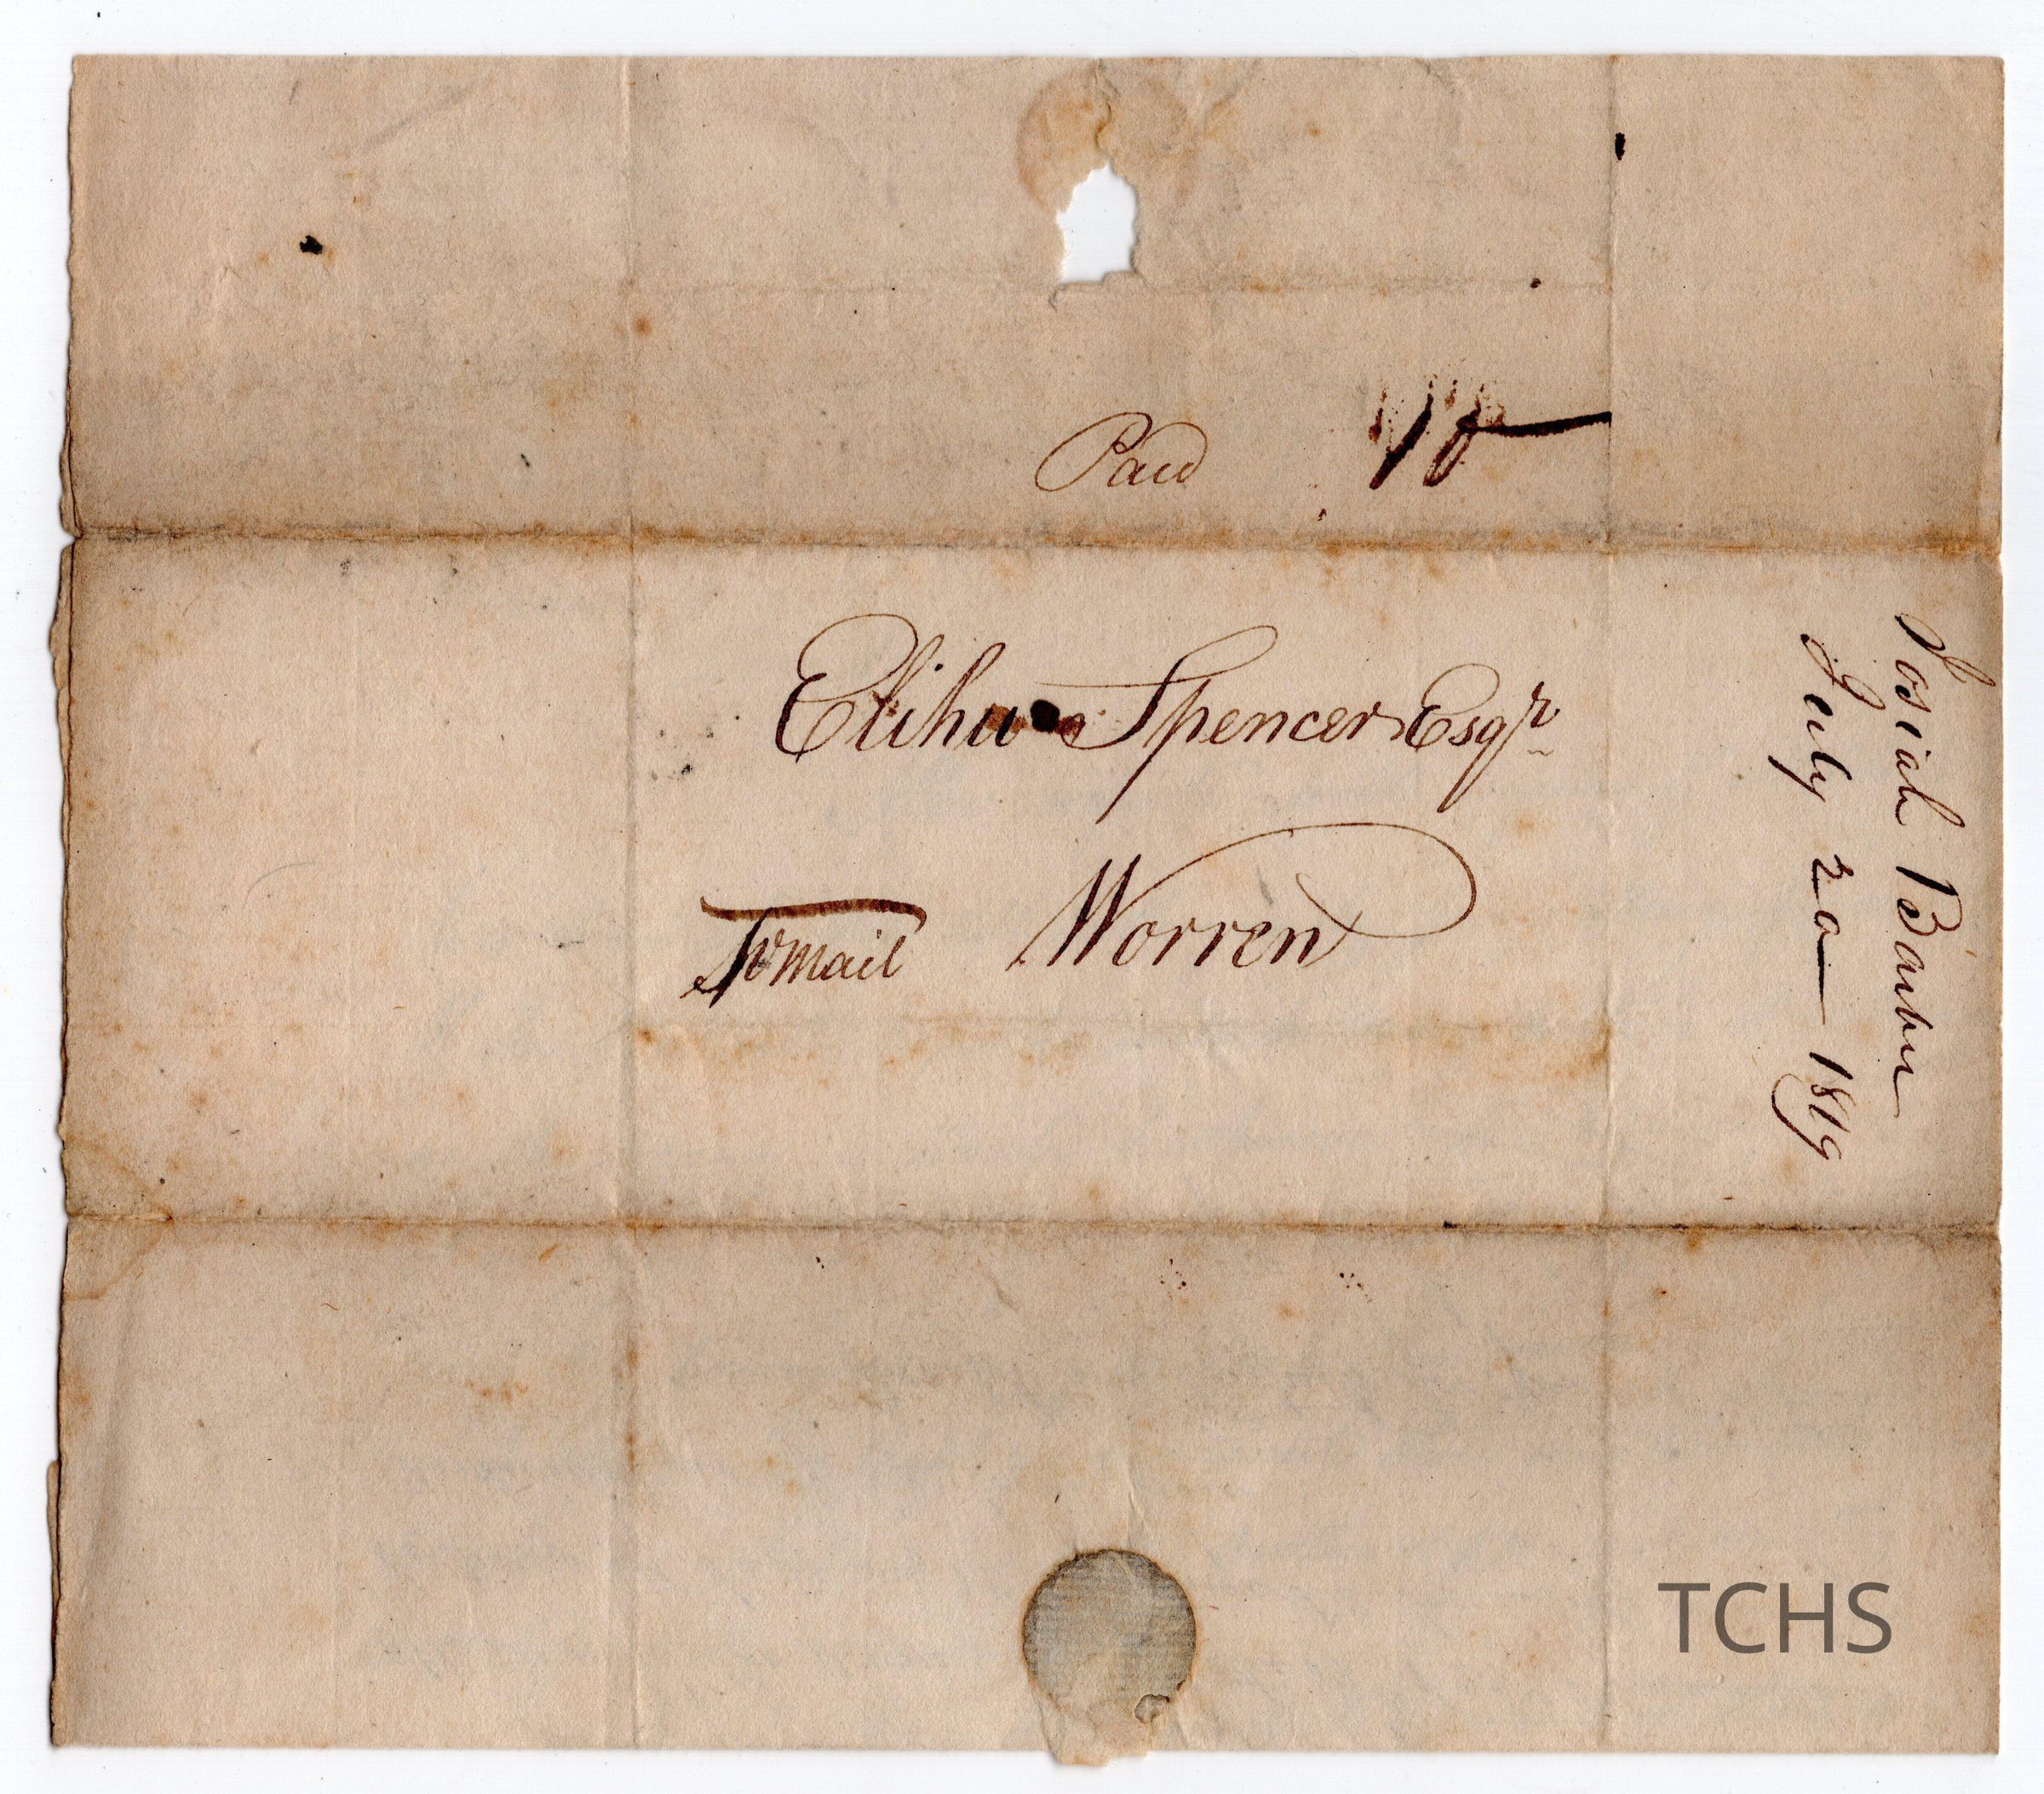 Paid
Elihu Spencer Esqr
Worren
pr mail
Josiah Barber
July 20 — 1819
TCHS